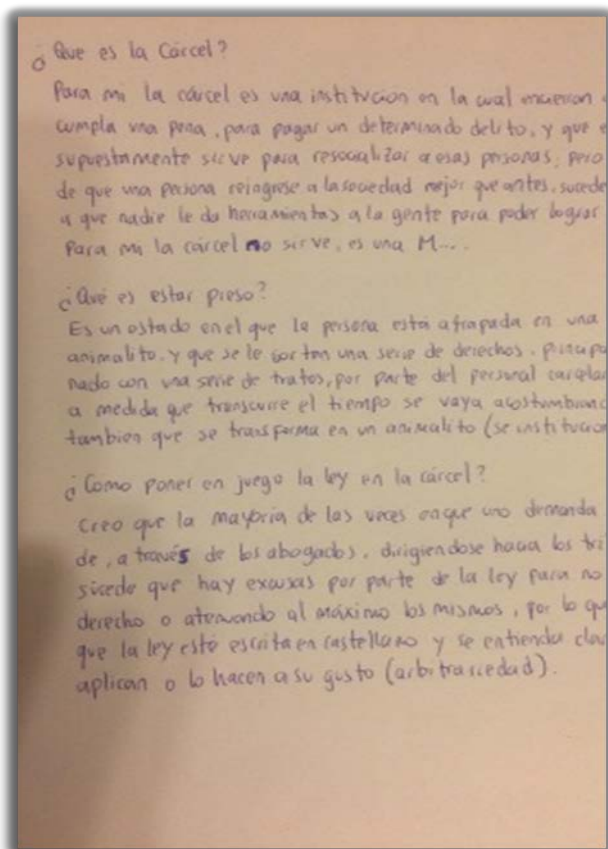 ¿Que es la Cárcel?
Para mi la cárcel es una institucion en la cual encierran
cumpla una pena, para pagar un determinado delito, y que e
supuestamente sirve para resocializar a esas personas, pero
de que una persona reingrese a la sociedad mejor que antes, sucede
a que nadie le da herramientas a la gente para poder lograr
Para mi la cárcel no sirve, es una M....
¿Qué es estar preso?
Es un estado en el que la persona está atrapada en una
animalito, y que se le cortan una serie de derechos, principa
nado con una serie de tratos, por parte del personal carcelar
a medida que transcurre el tiempo se vaya acostumbrand
tambien que se transforma en un animalito (se institucion
¿Como poner en juego la ley en la cárcel?
Creo que la mayoria de las veces en que uno demanda
de, a través de los abogados, dirigiendose hacia los tri
sucede que hay excusas por parte de la ley para no
derecho o atenuando al máximo los mismos, por lo qu
que la ley esté escrita en castellano y se entienda cla
aplican o lo hacen a su gusto (arbitrariedad).